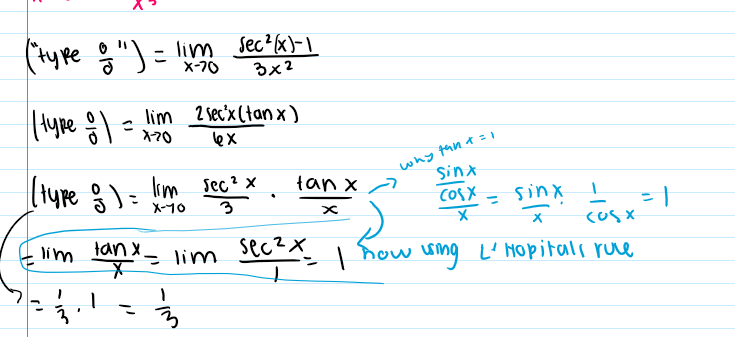 x³
("type 0/0") = lim x→0 (sec²(x)-1)/(3x²)
(type 0/0) = lim x→0 (2sec²x(tanx))/(6x)
why tan x = 1
(type 0/0) = lim x→0 (sec²x)/3 · (tanx)/x
((sinx)/(cosx))/x = (sinx)/x · 1/(cosx) = 1
= lim (tanx)/x = lim (sec²x)/1 = 1 now using L'Hopitals rule
= 1/3 · 1 = 1/3